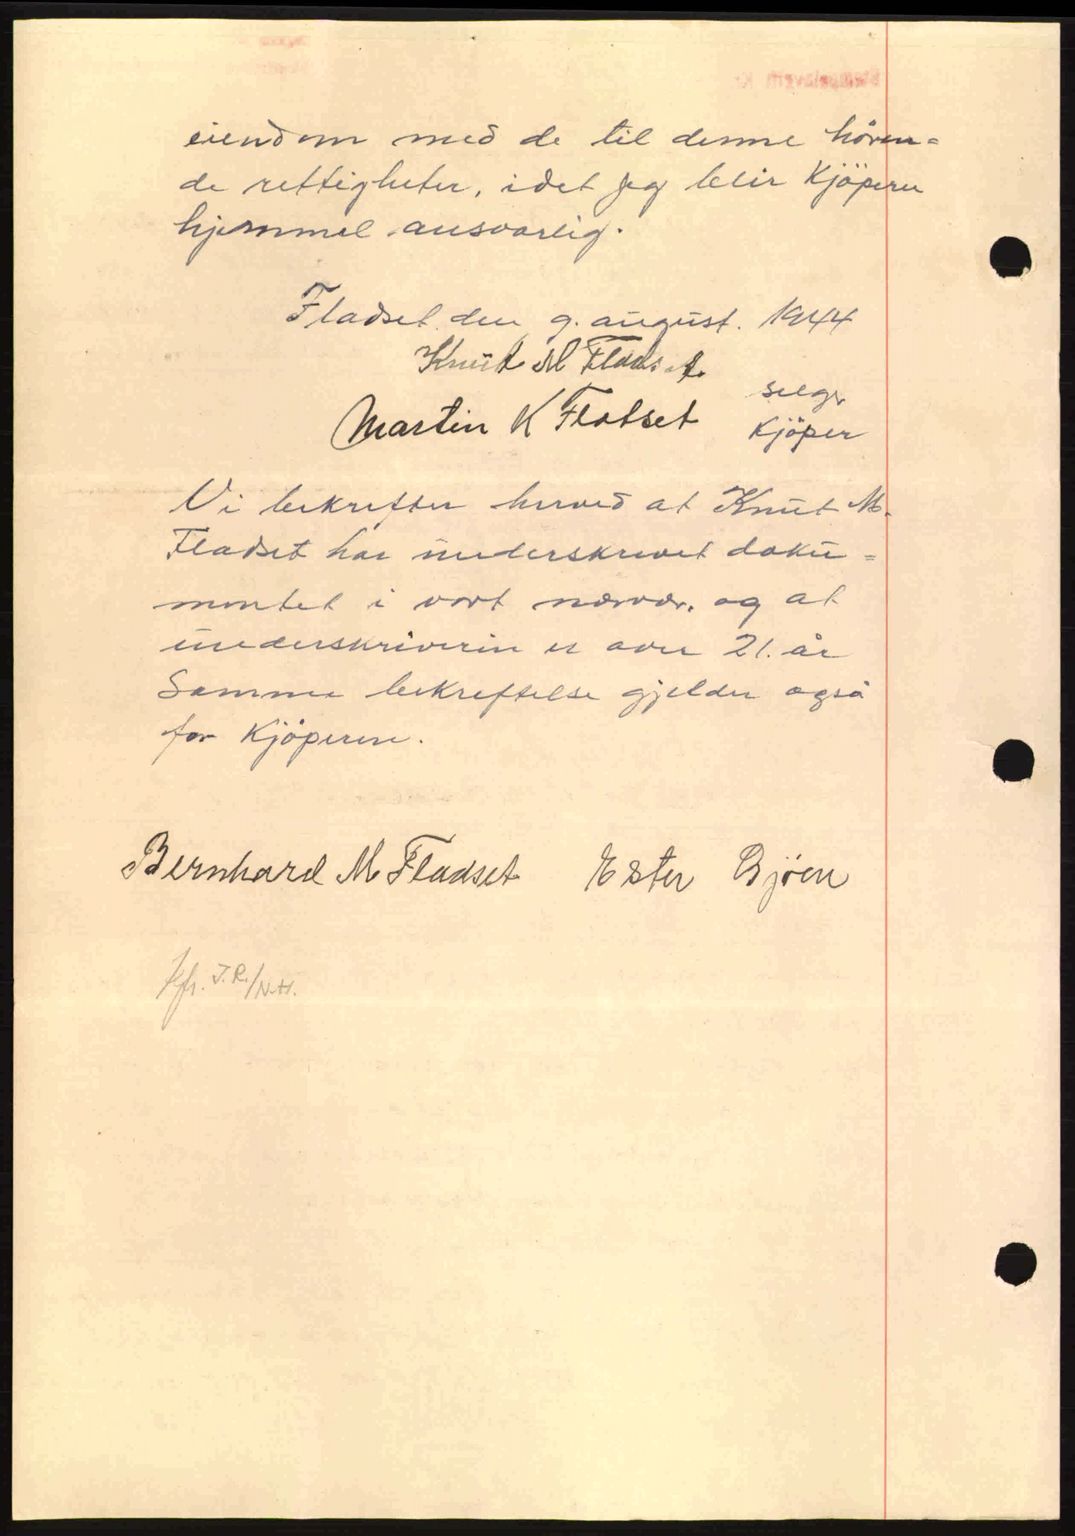 eiendom med de til denne hören=
de rettigheter, idet jeg blir Kjöperen
hjemmel ansvarlig.
Fladset den 9. august. 1944
Knut M Fladset.
selger
Martin K Flatset
Kjöper
Vi bekrefter herved at Knut M.
Fladset har underskrevet doku=
mentet i vort nærvær. og at
underskriveren er over 21. år
Samme bekreftelse gjelder også
for Kjöperen.
Bernhard M Fladset Ester Bjöen
Jfr. J.R./N.H.